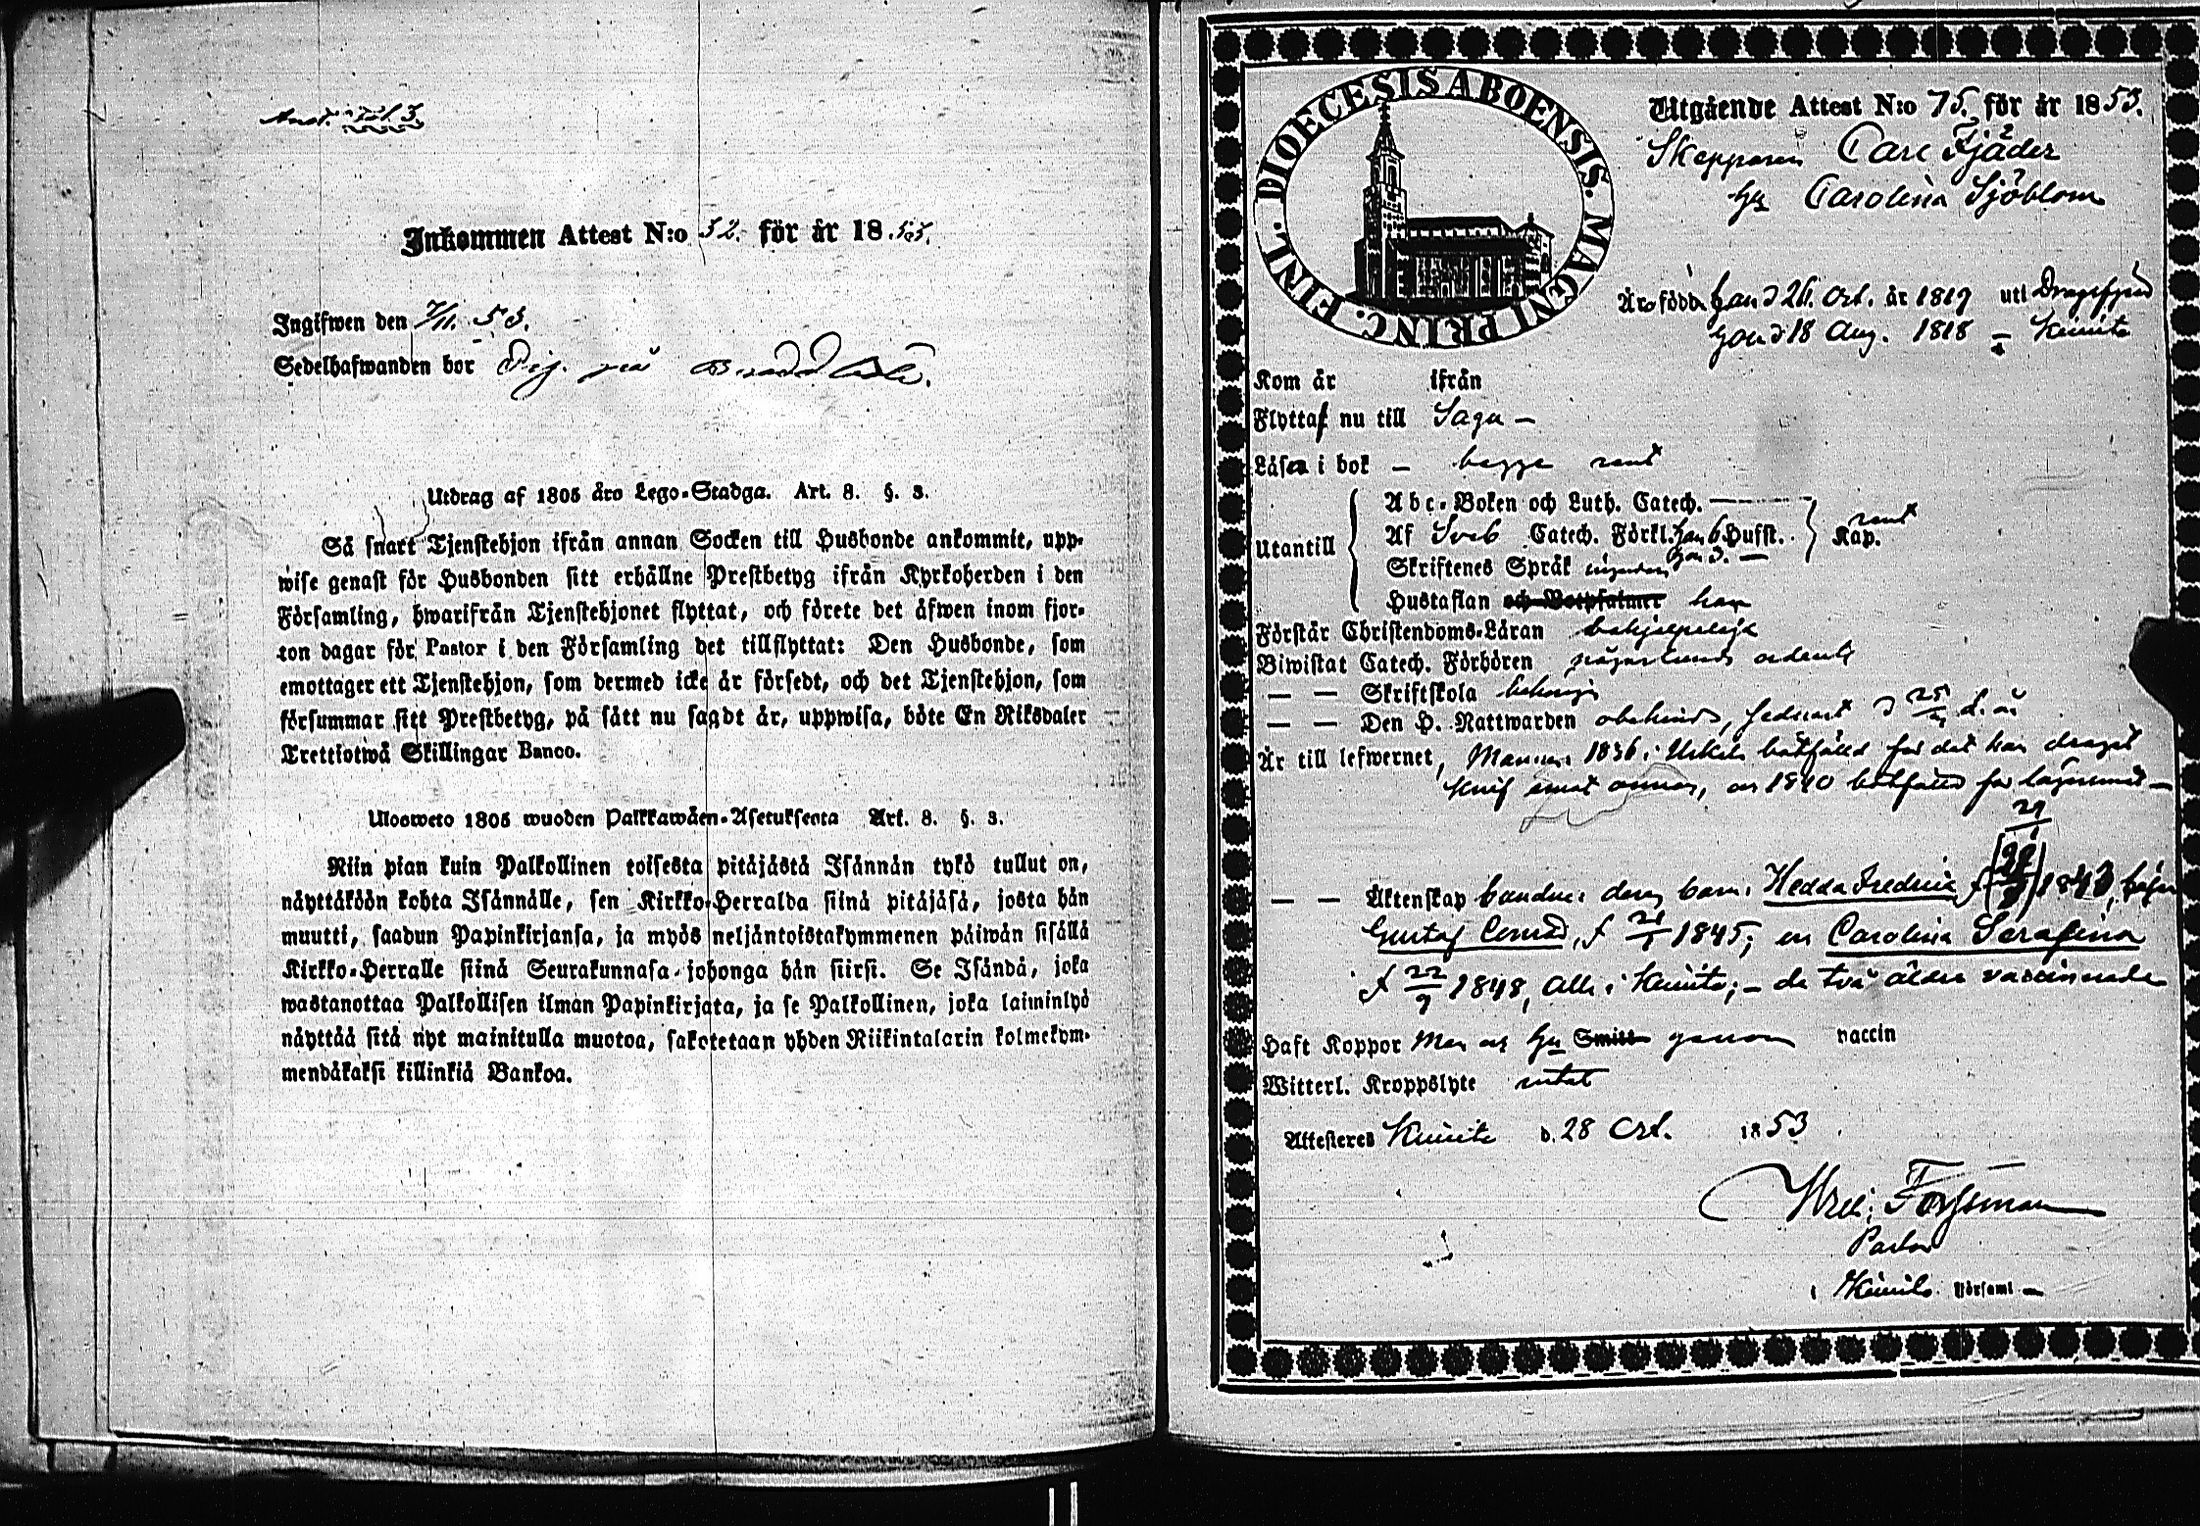 Inkommen Attest N:o 52. för år 1853.
Ingifwen den 7/11. 53.
Sedelhafwanden bor på
Utdrag af 1805 års Lego-Stadga. Art. 8. §. 3.
Så snart Tjenstehjon ifrån annan Socken till Husbonde ankommit, upp-
wise genast för Husbonden sitt erhållne Prestbetyg ifrån Kyrkoherden i den
Församling, hwarifrån Tjenstehjonet flyttat, och förete det äfwen inom fjor-
ton dagar för Pastor i den Församling det tillflyttat: Den Husbonde, som
emottager ett Tjenstehjon, som dermed icke är försedt, och det Tjenstehjon, som
försummar sitt Prestbetyg, på sätt nu sagdt är, uppwisa, böte En Riksdaler
Trettiotwå Skillingar Banco.
Ulosweto 1805 wuoden Palkkawäen-Asetuksesta Art. 8. §. 3.
Niin pian kuin Palkollinen toisesta pitäjästä Isännän tykö tullut on,
näyttäköön kohta Isännälle, sen Kirkko-Herralda siinä pitäjäsä, josta hän
muutti, saadun Papinkirjansa, ja myös neljäntoistakymmenen päiwän sisällä
Kirkko-Herralle siinä Seurakunnasa johonga hän siirsi. Se Isändä, joka
wastanottaa Palkollisen ilman Papinkirjata, ja se Palkollinen, joka laiminlyö
näyttää sitä nyt mainitulla muotoa, sakotetaan yhden Riikintalarin kolmekym-
mendäkaksi killinkiä Bankoa.
DIOECESIS ABOENSIS. MAGNI PRINC. FINL.
Utgående Attest N:o 75. för år 1853.
Skepparen Carl Fjäder
Carolina Sjöblom
Äro född han d 26. Oct. år 1819 uti Dragsfjerd
hon d 18 Aug. 1818 – Kimito
Kom år ifrån
Flyttar nu till Sagu –
Läsa i bok – begge rent
Utantill
Abc-Boken och Luth. Catech. –
Af Sveb Catech. Förkl. han 6 Hufst. Kap. rent
Skriftenes Språk hon 3. –
Hustaflan och Botpsalmer han
Förstår Christendoms-Läran behjelpeligt
Biwistat Catech. Förhören någorlunda ordentl
— — Skriftskola behörigt
— — Den H. Nattwarden obehindr, sednast d 25/ d. år
Är till lefwernet, Mannen 1836 i Urkila bötfälld för det han dragit
knif emot annan, och 1840 bötfälld för lägersmål –
29/
— — Äktenskap bundne: deras barn: Hedda Fredrica f 1843,
Gustaf Conrad, f 21/1 1845; och Carolina Serafina
f 22/9 1848, alla i Kimito; – de två äldre vaccinerade
Haft Koppor Man och hu Smitt genom vaccin
Witterl. Kroppslyte intet
Attesteres Kimito d. 28 Oct. 1853
Forssman
Pastor
i Kimito Församl –